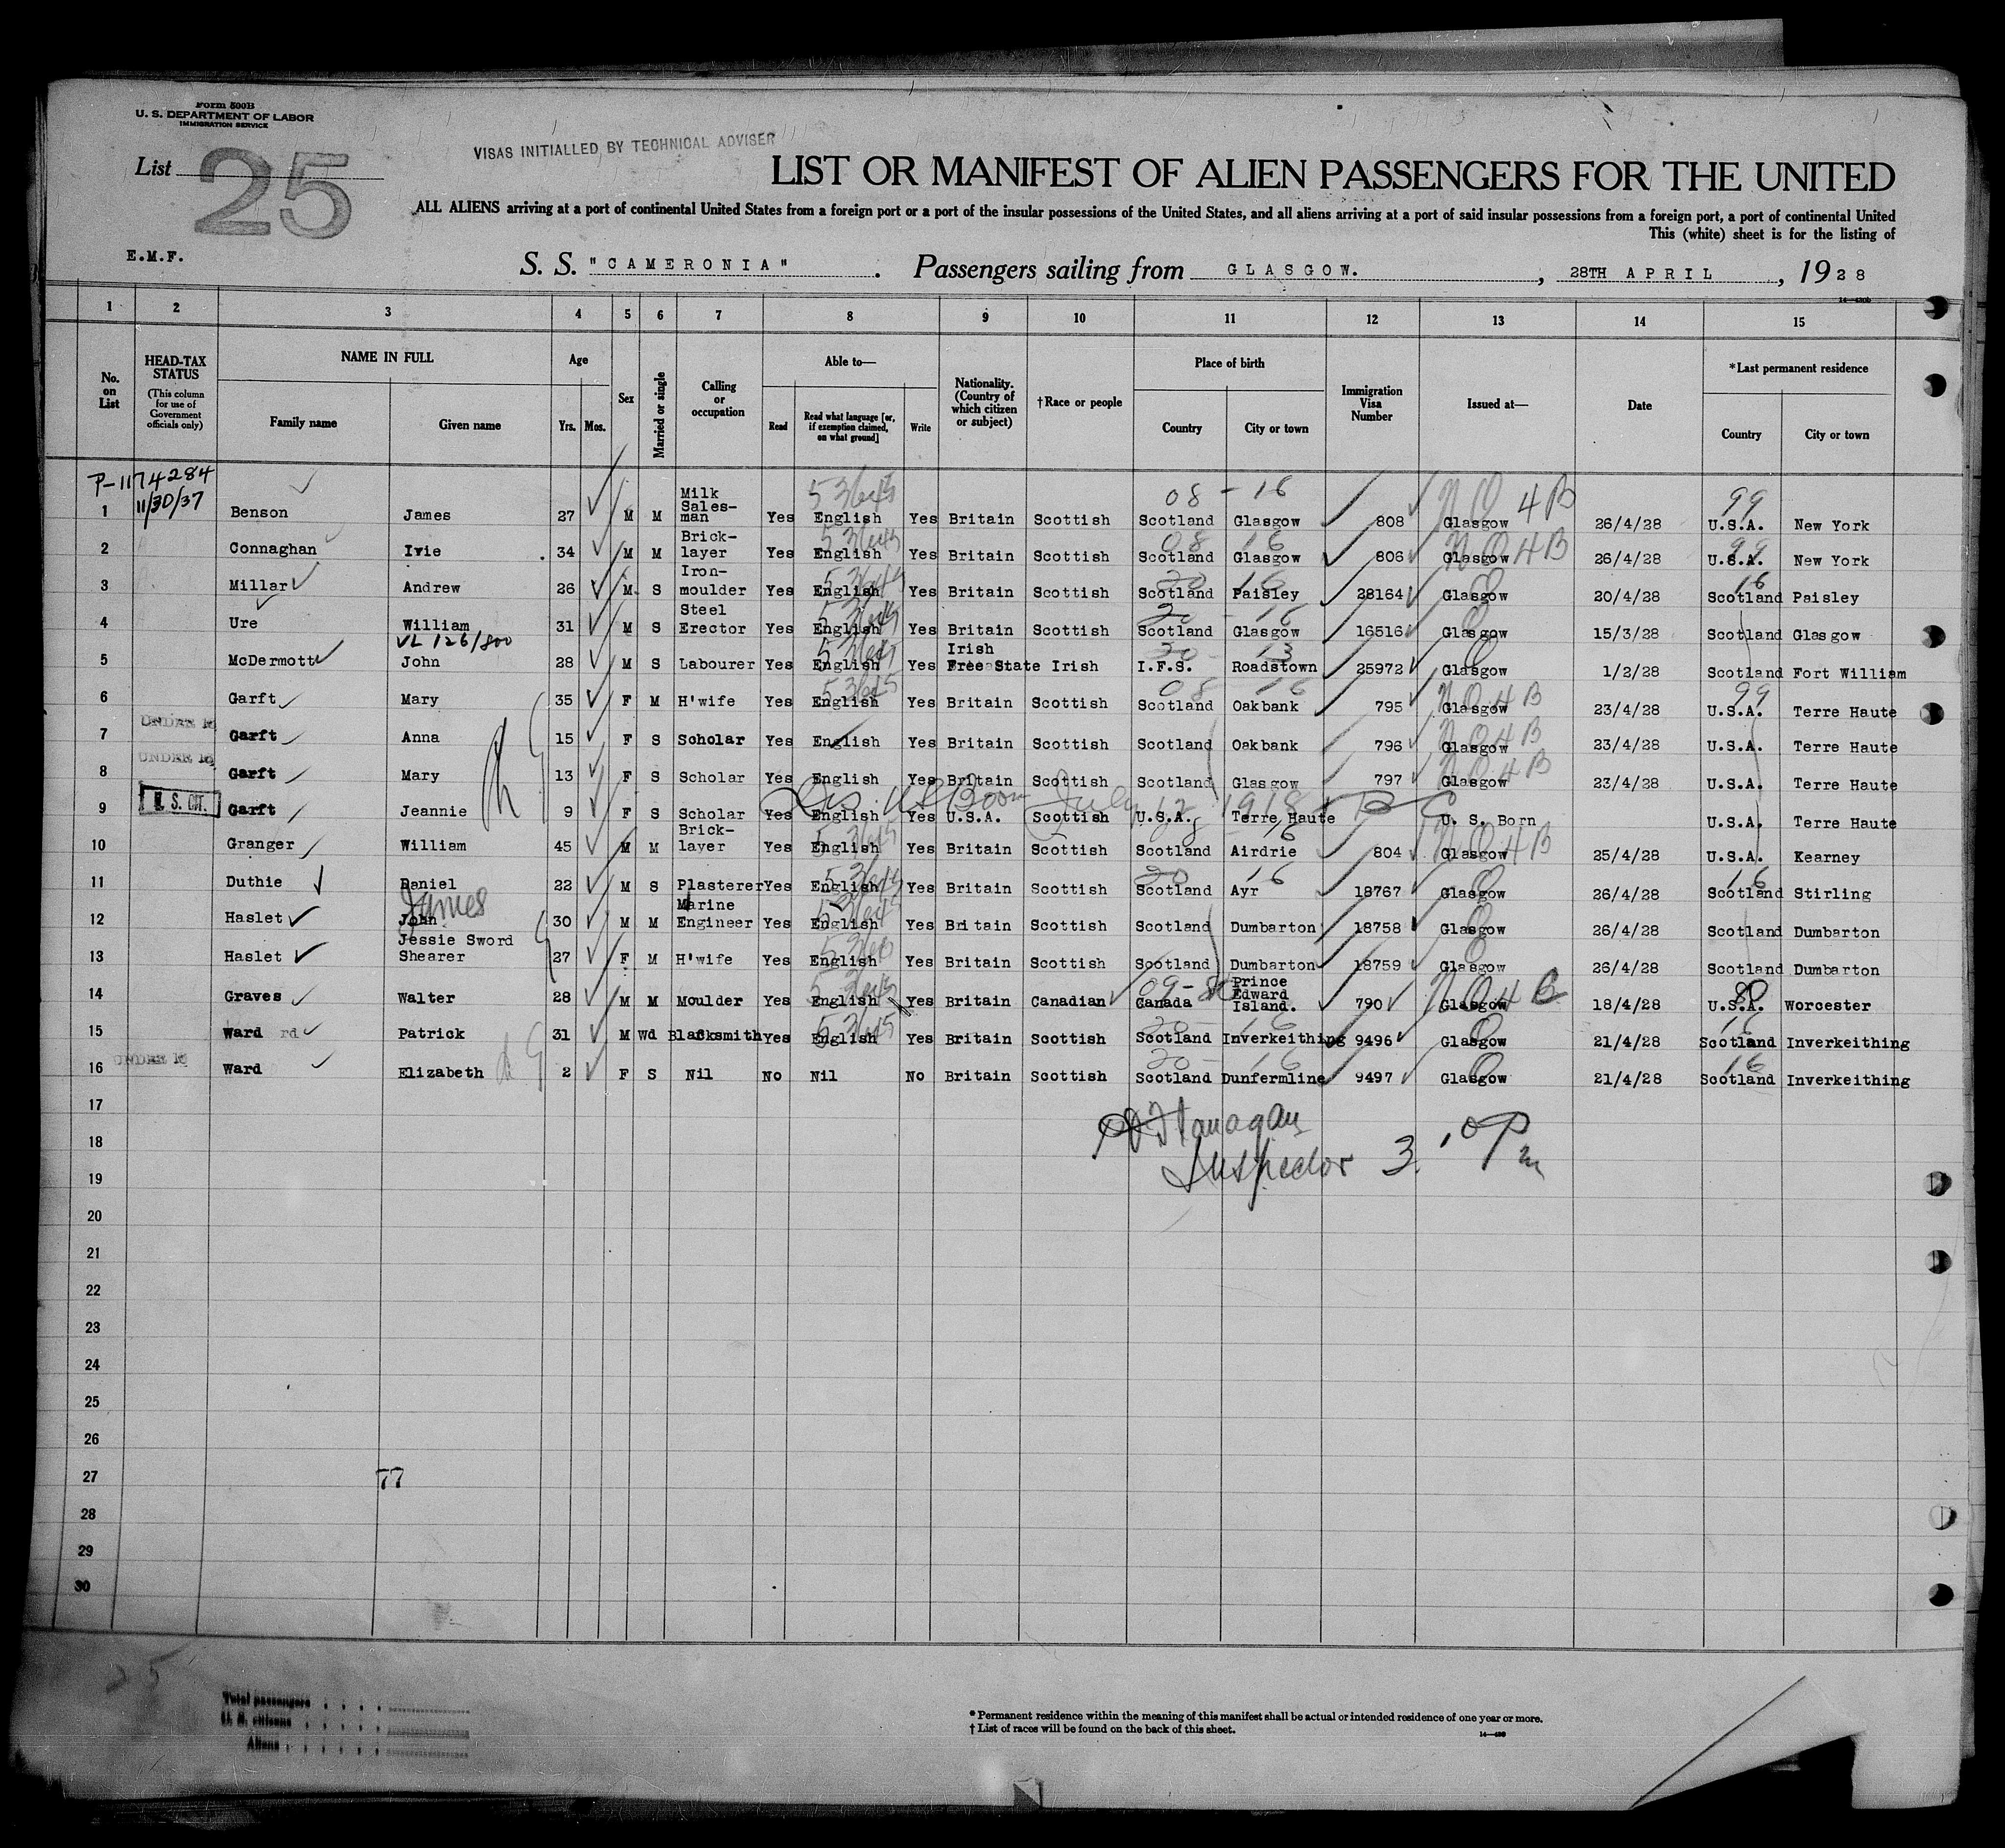 Form 500B
U. S. DEPARTMENT OF LABOR
IMMIGRATION SERVICE
VISAS INITIALLED BY TECHNICAL ADVISER
List 25
LIST OR MANIFEST OF ALIEN PASSENGERS FOR THE UNITED
ALL ALIENS arriving at a port of continental United States from a foreign port or a port of the insular possessions of the United States, and all aliens arriving at a port of said insular possessions from a foreign port, a port of continental United
This (white) sheet is for the listing of
E.M.F.
S. S. "CAMERONIA" . Passengers sailing from GLASGOW. , 28TH APRIL , 1928
1 2 3 4 5 6 7 8 9 10 11 12 13 14 15
No. on List
HEAD-TAX STATUS (This column for use of Government officials only)
NAME IN FULL Family name Given name
Age Yrs. Mos.
Sex
Married or single
Calling or occupation
Able to— Read Read what language [or, if exemption claimed, on what ground] Write
Nationality. (Country of which citizen or subject)
†Race or people
Place of birth Country City or town
Immigration Visa Number
Issued at—
Date
*Last permanent residence Country City or town
P-1174284
11/30/37
1 Benson James 27 M M Milk Sales-man Yes English Yes Britain Scottish Scotland Glasgow 808 Glasgow 26/4/28 U.S.A. New York
2 Connaghan Ivie 34 M M Brick-layer Yes English Yes Britain Scottish Scotland Glasgow 806 Glasgow 26/4/28 U.S.A. New York
3 Millar Andrew 26 M S Iron-moulder Yes English Yes Britain Scottish Scotland Paisley 28164 Glasgow 20/4/28 Scotland Paisley
4 Ure William 31 M S Steel Erector Yes English Yes Britain Scottish Scotland Glasgow 16516 Glasgow 15/3/28 Scotland Glasgow
VL 126/800
5 McDermott John 28 M S Labourer Yes English Yes Irish Free State Irish I.F.S. Roadstown 25972 Glasgow 1/2/28 Scotland Fort William
6 Garft Mary 35 F M H'wife Yes English Yes Britain Scottish Scotland Oakbank 795 Glasgow 23/4/28 U.S.A. Terre Haute
UNDER 16
7 Garft Anna 15 F S Scholar Yes English Yes Britain Scottish Scotland Oakbank 796 Glasgow 23/4/28 U.S.A. Terre Haute
UNDER 16
8 Garft Mary 13 F S Scholar Yes English Yes Britain Scottish Scotland Glasgow 797 Glasgow 23/4/28 U.S.A. Terre Haute
July 12 1918
U. S. CIT.
9 Garft Jeannie 9 F S Scholar Yes English Yes U.S.A. Scottish U.S.A. Terre Haute U. S. Born U.S.A. Terre Haute
10 Granger William 45 M M Brick-layer Yes English Yes Britain Scottish Scotland Airdrie 804 Glasgow 25/4/28 U.S.A. Kearney
11 Duthie Daniel 22 M S Plasterer Yes English Yes Britain Scottish Scotland Ayr 18767 Glasgow 26/4/28 Scotland Stirling
James
12 Haslet John 30 M M Marine Engineer Yes English Yes Britain Scottish Scotland Dumbarton 18758 Glasgow 26/4/28 Scotland Dumbarton
13 Haslet Jessie Sword Shearer 27 F M H'wife Yes English Yes Britain Scottish Scotland Dumbarton 18759 Glasgow 26/4/28 Scotland Dumbarton
14 Graves Walter 28 M M Moulder Yes English Yes Britain Canadian Canada Prince Edward Island. 790 Glasgow 18/4/28 U.S.A. Worcester
15 Ward Patrick 31 M Wd Blacksmith Yes English Yes Britain Scottish Scotland Inverkeithing 9496 Glasgow 21/4/28 Scotland Inverkeithing
UNDER 16
16 Ward Elizabeth 2 F S Nil No Nil No Britain Scottish Scotland Dunfermline 9497 Glasgow 21/4/28 Scotland Inverkeithing
17
Flanagan
18
Inspector 3.
19
20
21
22
23
24
25
26
27 77
28
29
30
25
Total passengers
U. S. citizens
Aliens
*Permanent residence within the meaning of this manifest shall be actual or intended residence of one year or more.
†List of races will be found on the back of this sheet.